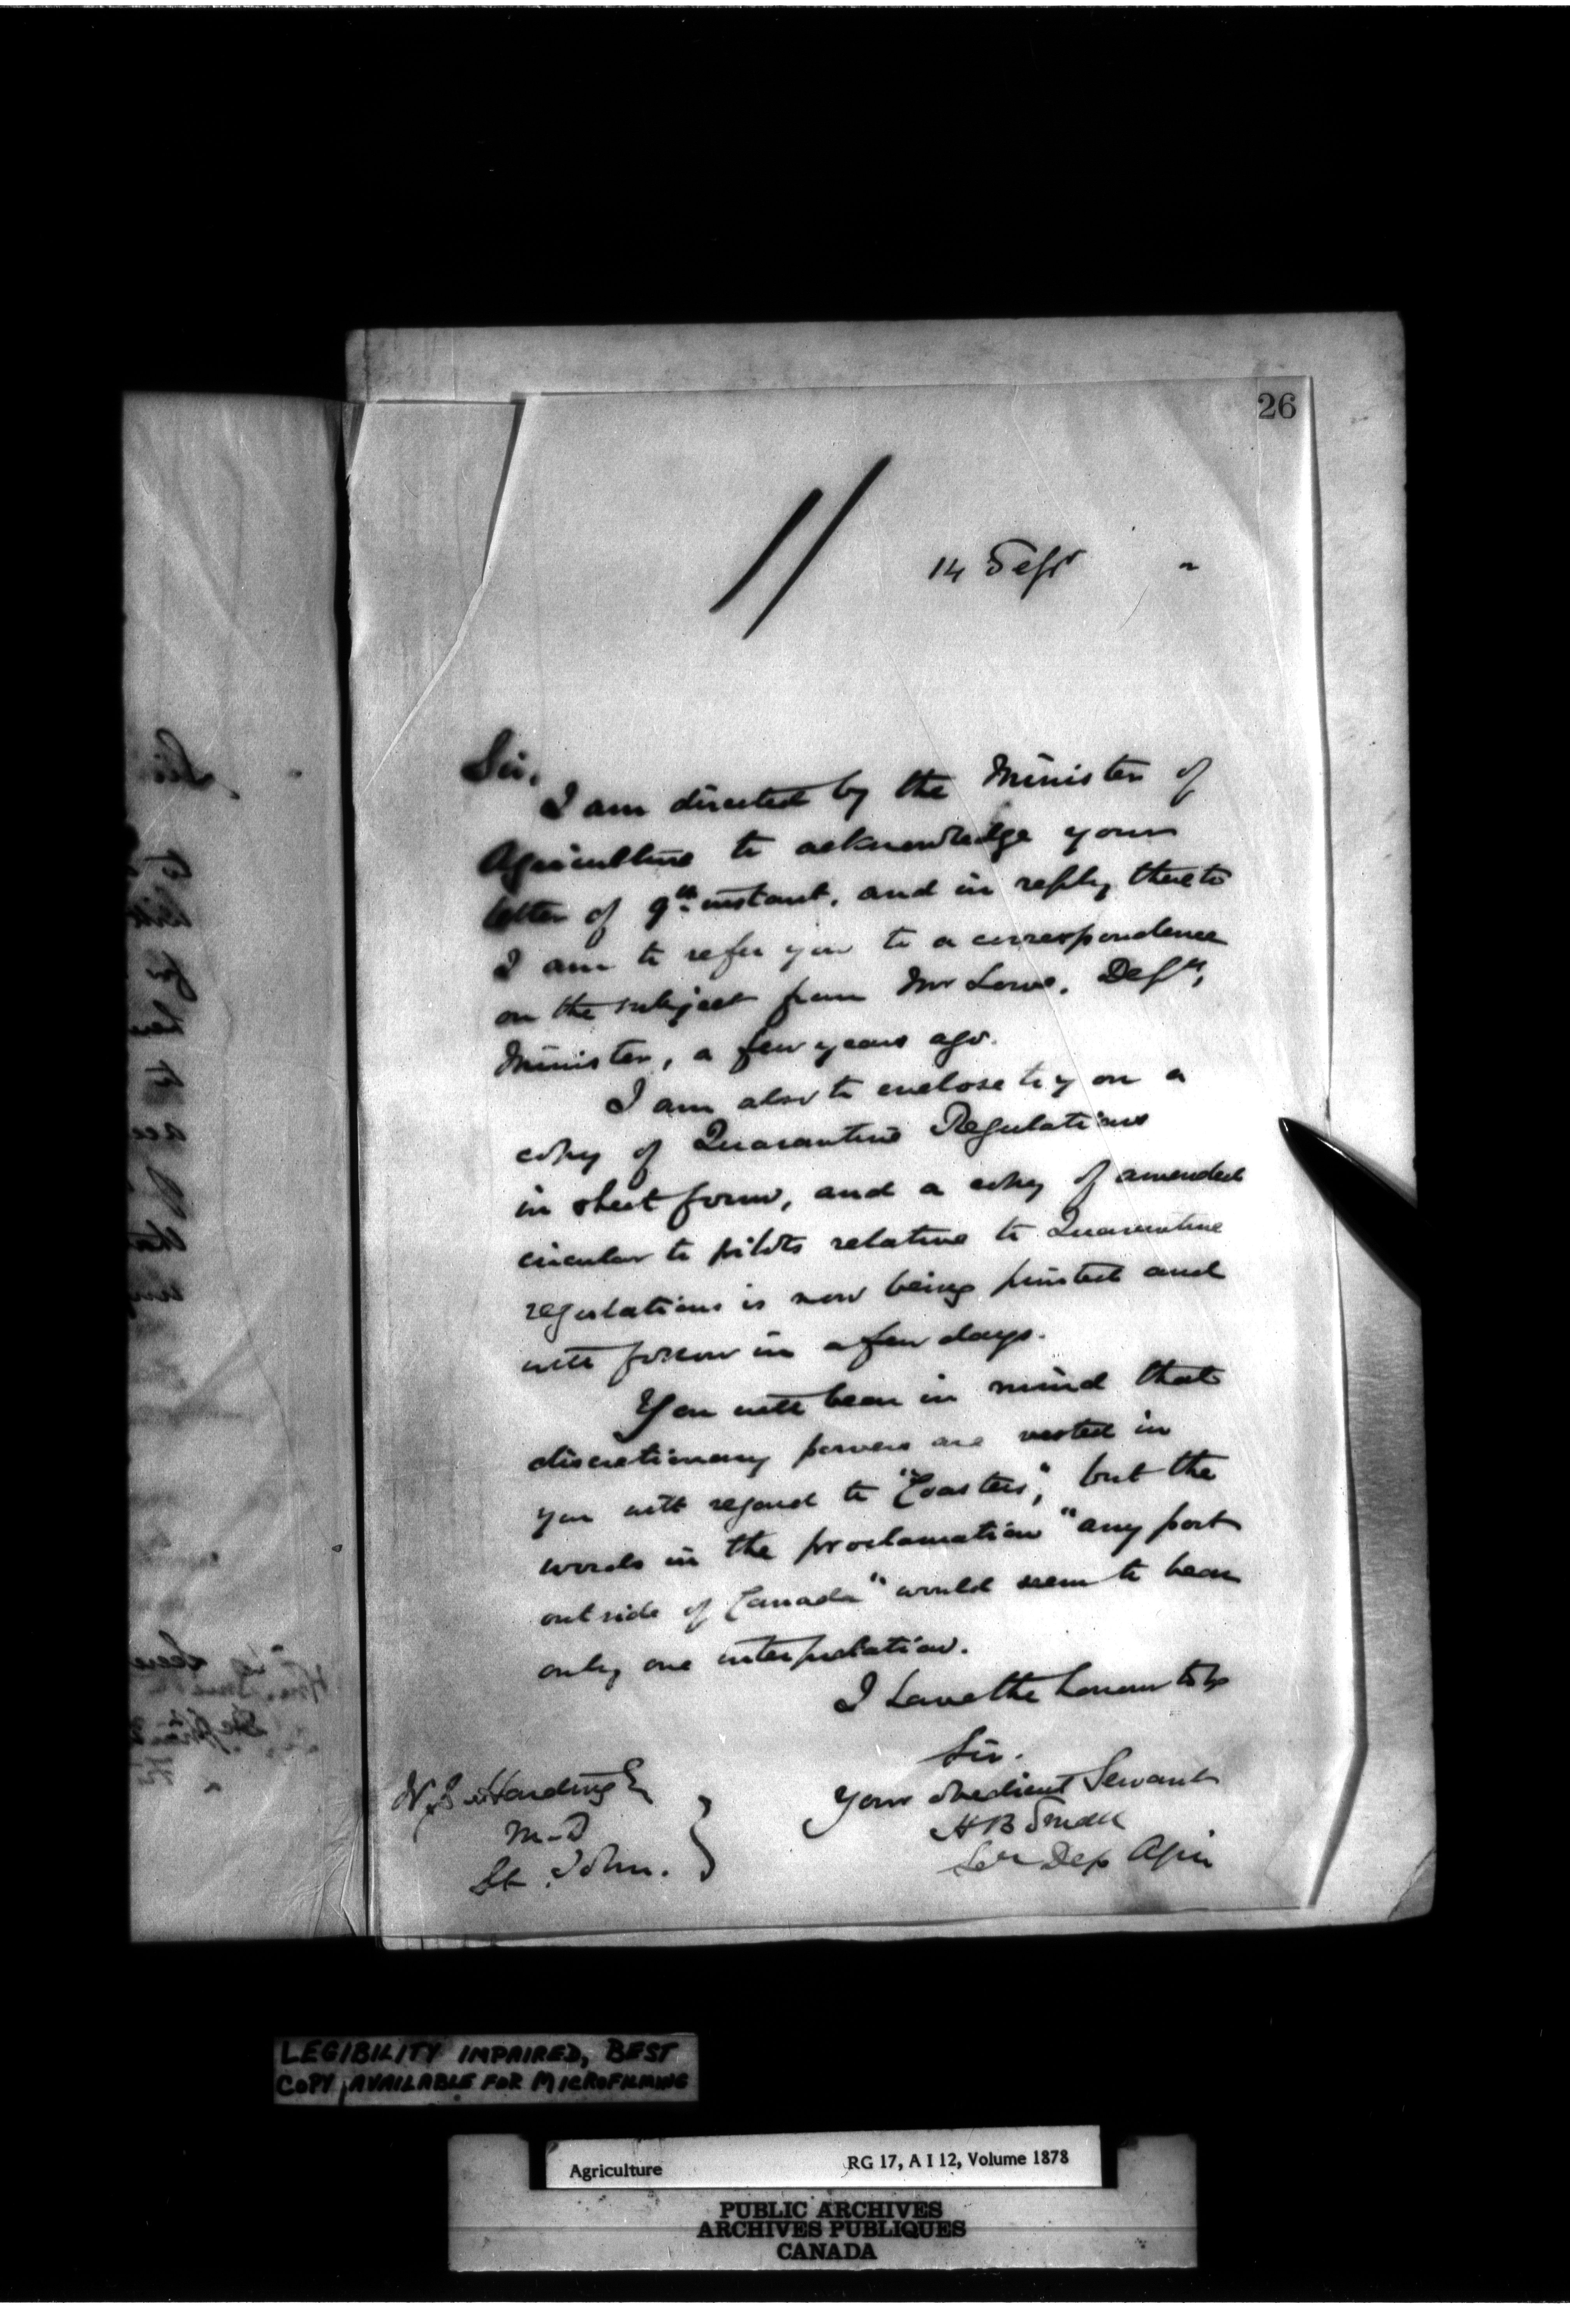 26
11
14 Sept
Sir,
I am directed by the Minister of
Agriculture to acknowledge your
letter of 9th instant, and in reply thereto
I am to refer you to a correspondence
on the subject from Mr Lowe, Depy
Minister, a few years ago.
I am also to enclose to you a
copy of Quarantine Regulations
in sheet form, and a copy of amended
circular to pilots relative to Quarantine
regulations is now being printed and
will follow in a few days.
You will bear in mind that
discretionary powers are vested in
you with regard to "Coasters", but the
words in the proclamation "any port
outside of Canada" would seem to bear
only one interpretation.
I have the honour to be
Sir.
Your obedient Servant
H B Small
Secy Dep Agri
W. S. Harding
M.D
St. John.
LEGIBILITY IMPAIRED, BEST
COPY AVAILABLE FOR MICROFILMING
Agriculture RG 17, A I 12, Volume 1878
PUBLIC ARCHIVES
ARCHIVES PUBLIQUES
CANADA